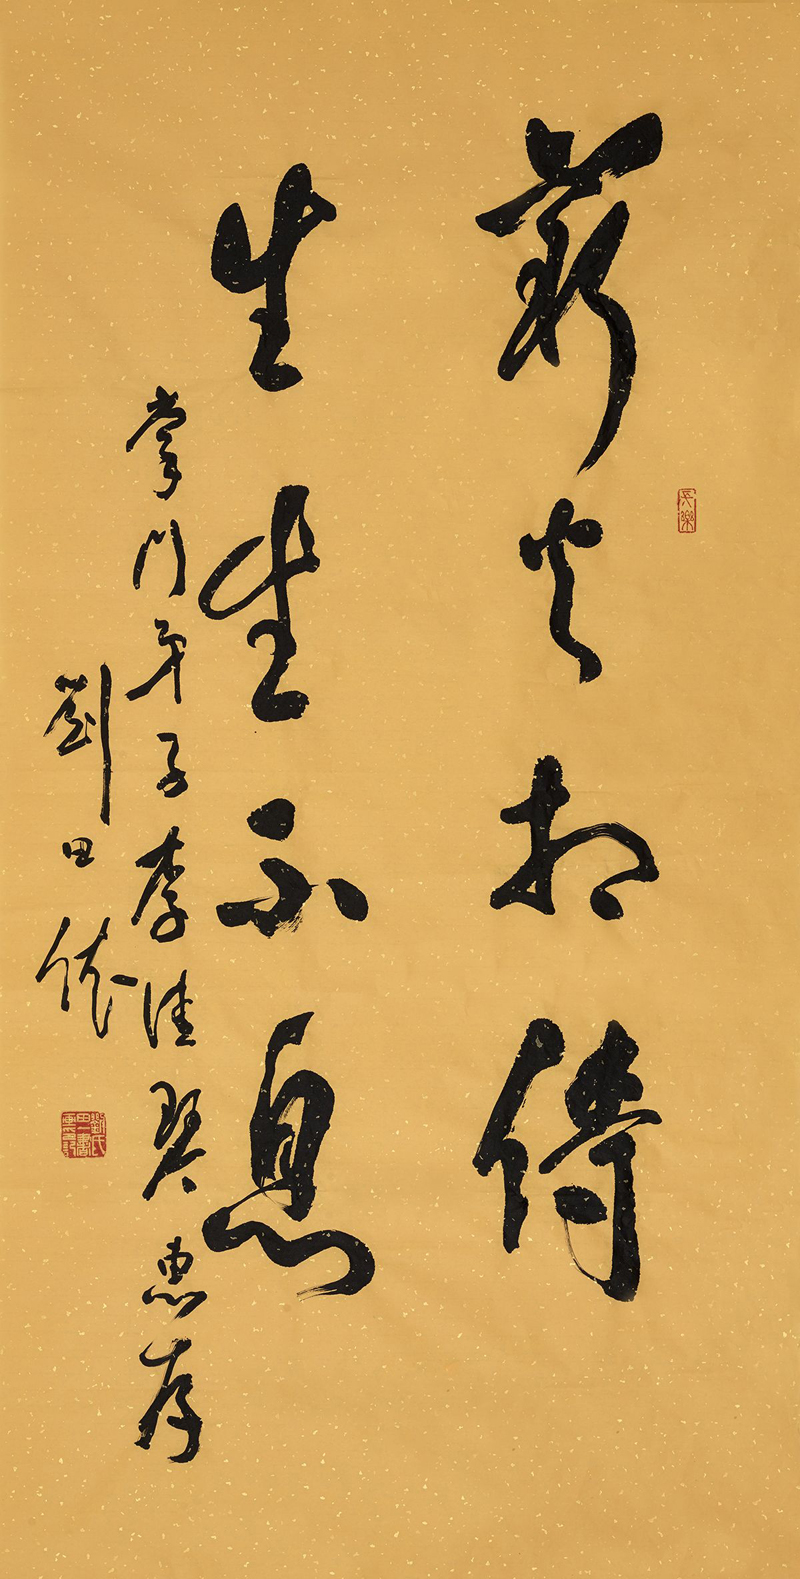 薪火相傳
生生不息
掌門弟子李佳琴惠存
劉田依
長樂